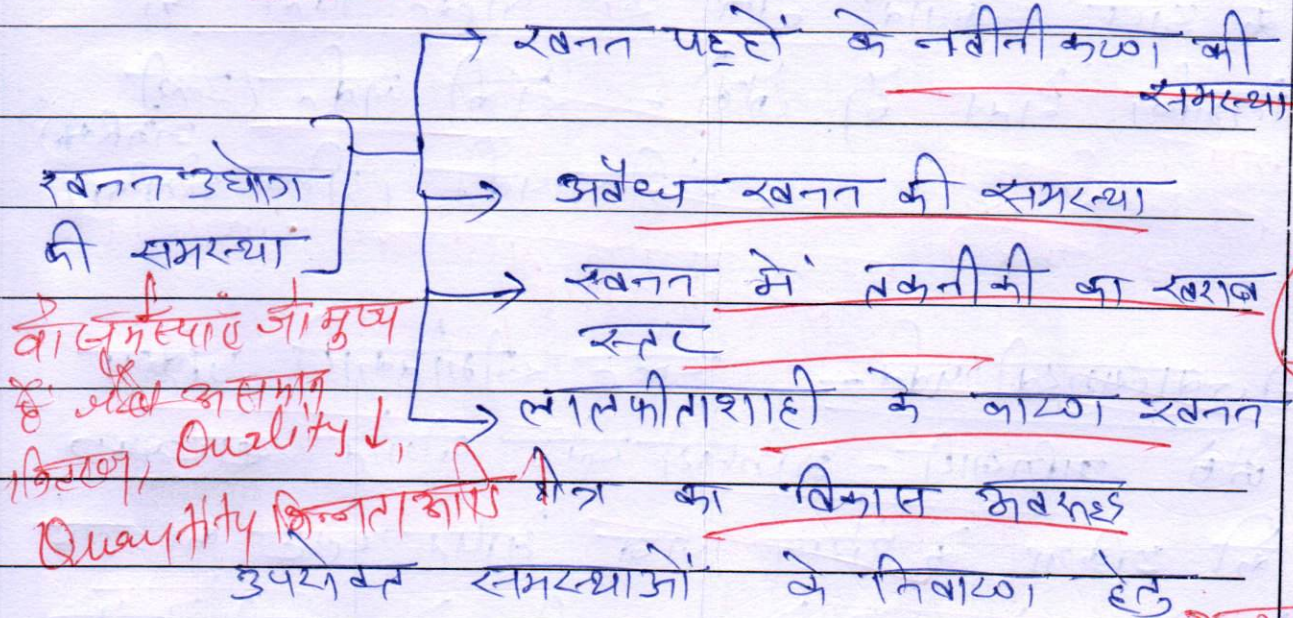 → खनन पट्टों के नवीनीकरण की
समस्या
खनन उद्योग
की समस्या
→ अवैध खनन की समस्या
→ खनन में तकनीकी का खराब
स्तर
→ लालफीताशाही के कारण खनन
क्षेत्र का विकास अवरुद्ध
वो समस्याएं जो मुख्य
हैं जैसे असमान
वितरण, Quality ↓,
Quantity भिन्नता आदि
उपरोक्त समस्याओं के निवारण हेतु